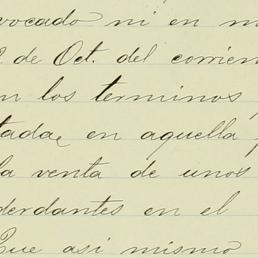 vocado ni en m
2 de Oct. del corrien
en los terminos
tadae en aquella
la venta de unos
derdantes en el
Que asi mismo